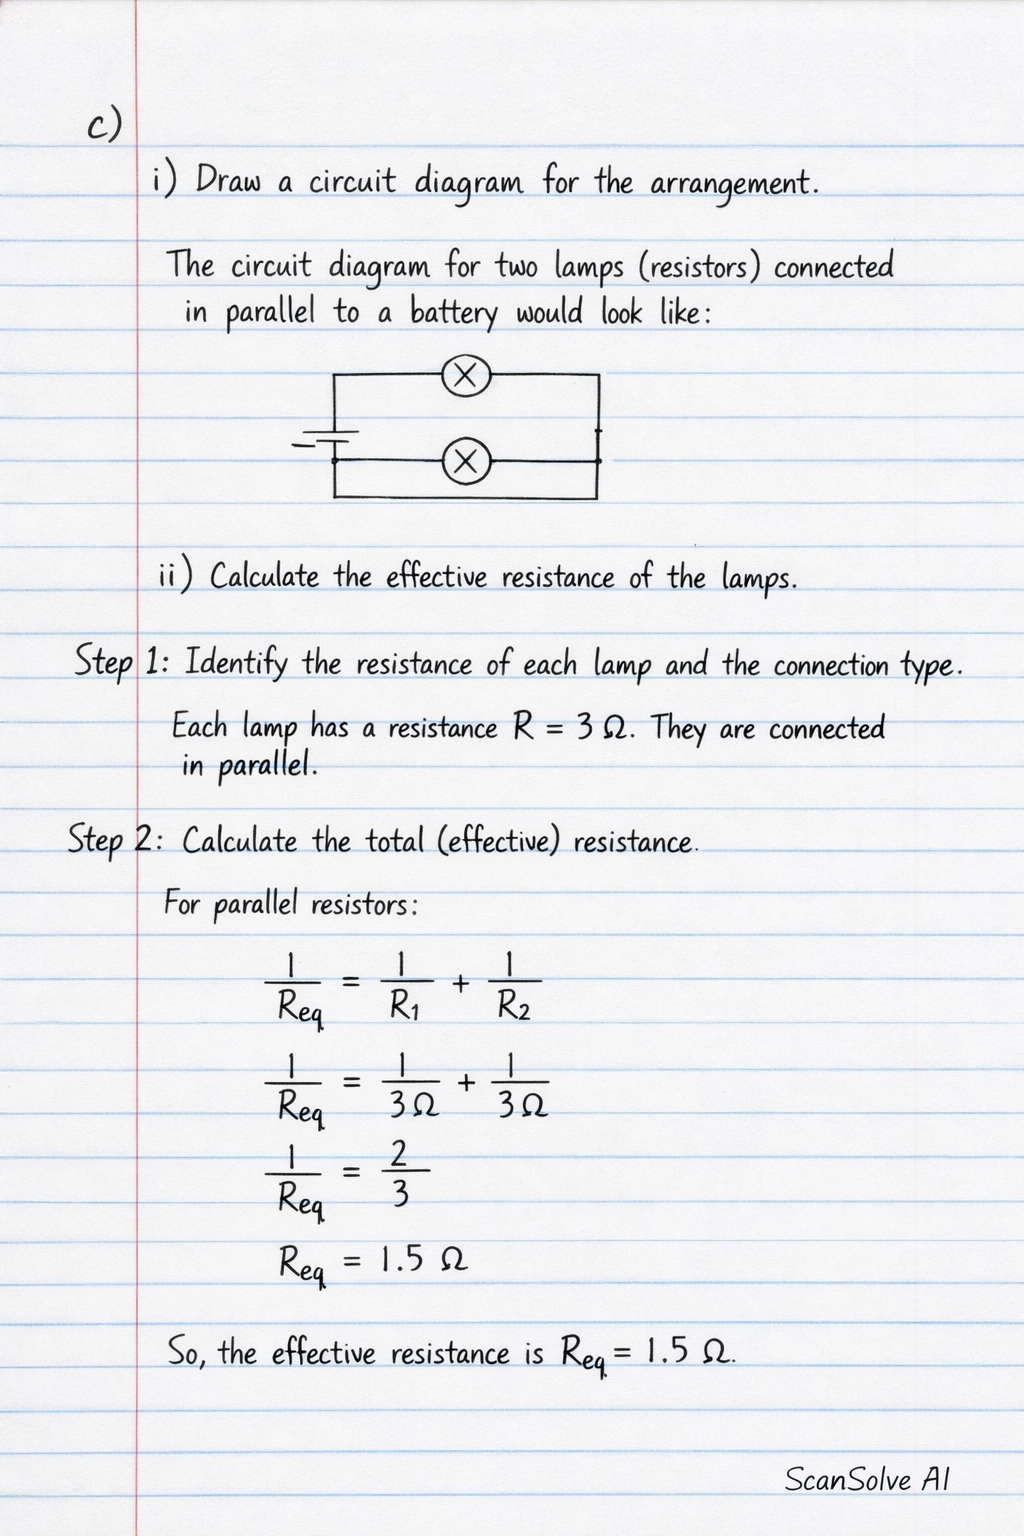 c)
i) Draw a circuit diagram for the arrangement.
The circuit diagram for two lamps (resistors) connected
in parallel to a battery would look like:
ii) Calculate the effective resistance of the lamps.
Step 1: Identify the resistance of each lamp and the connection type.
Each lamp has a resistance R = 3 Ω. They are connected
in parallel.
Step 2: Calculate the total (effective) resistance.
For parallel resistors:
1/Req = 1/R1 + 1/R2
1/Req = 1/3Ω + 1/3Ω
1/Req = 2/3
Req = 1.5 Ω
So, the effective resistance is Req = 1.5 Ω.
ScanSolve AI